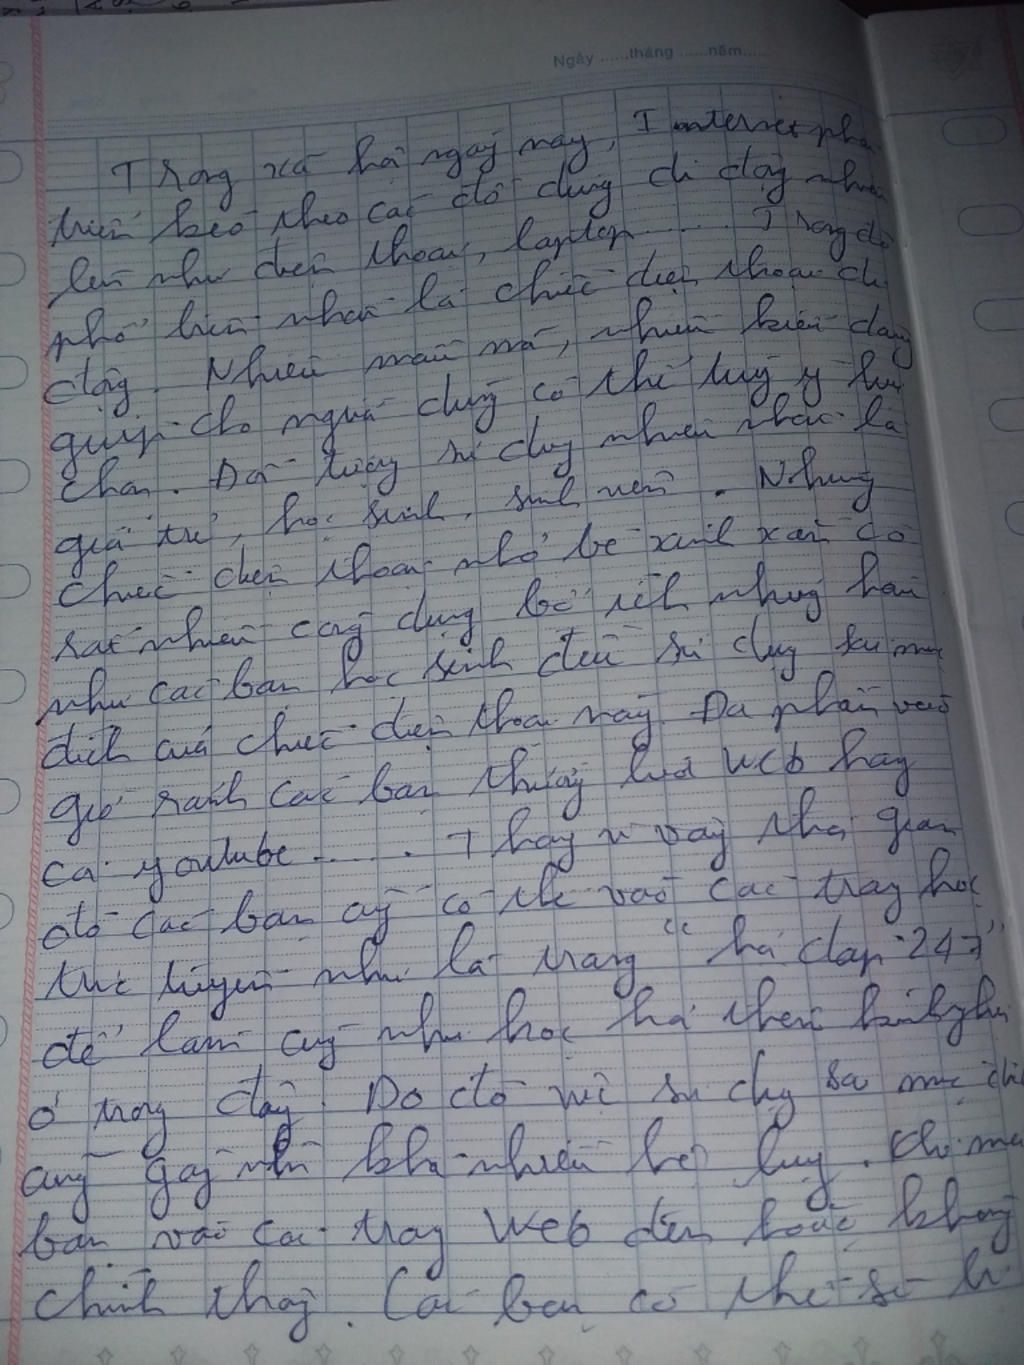 Ngày ......tháng ......năm......
Trong xã hội ngày nay, Internet phá
triển kéo theo các đồ dùng di động nhiều
lên như điện thoại, laptop....... Trong đó
phổ biến nhất là chiếc điện thoại di
động. Nhiều mẫu mã, nhiều kiểu dáng
giúp cho người dùng có thể tuỳ ý lựa
chọn. Đối tượng sử dụng nhiều nhất là
giới trẻ, học sinh, sinh viên. Những
chiếc điện thoại nhỏ bé xinh xắn có
rất nhiều công dụng bổ ích nhưng hầu
như các bạn học sinh đều sử dụng sai mục
đích của chiếc điện thoại này. Đa phần vào
giờ rảnh các bạn thường lướt Web hay
coi youtube....... Thay vì vậy thời gian
đó các bạn ấy có thể vào các trang học
trực tuyến như là trang "hỏi đáp 247"
để làm cũng như học hỏi thêm kinh nghiệm
ở trong đấy. Do đó việc sử dụng sai mục đích
cũng gây nên khá nhiều hệ lụy. Khi mà
bạn vào các trang Web đen hoặc không
chính thống. Các bạn có thể sẽ bị